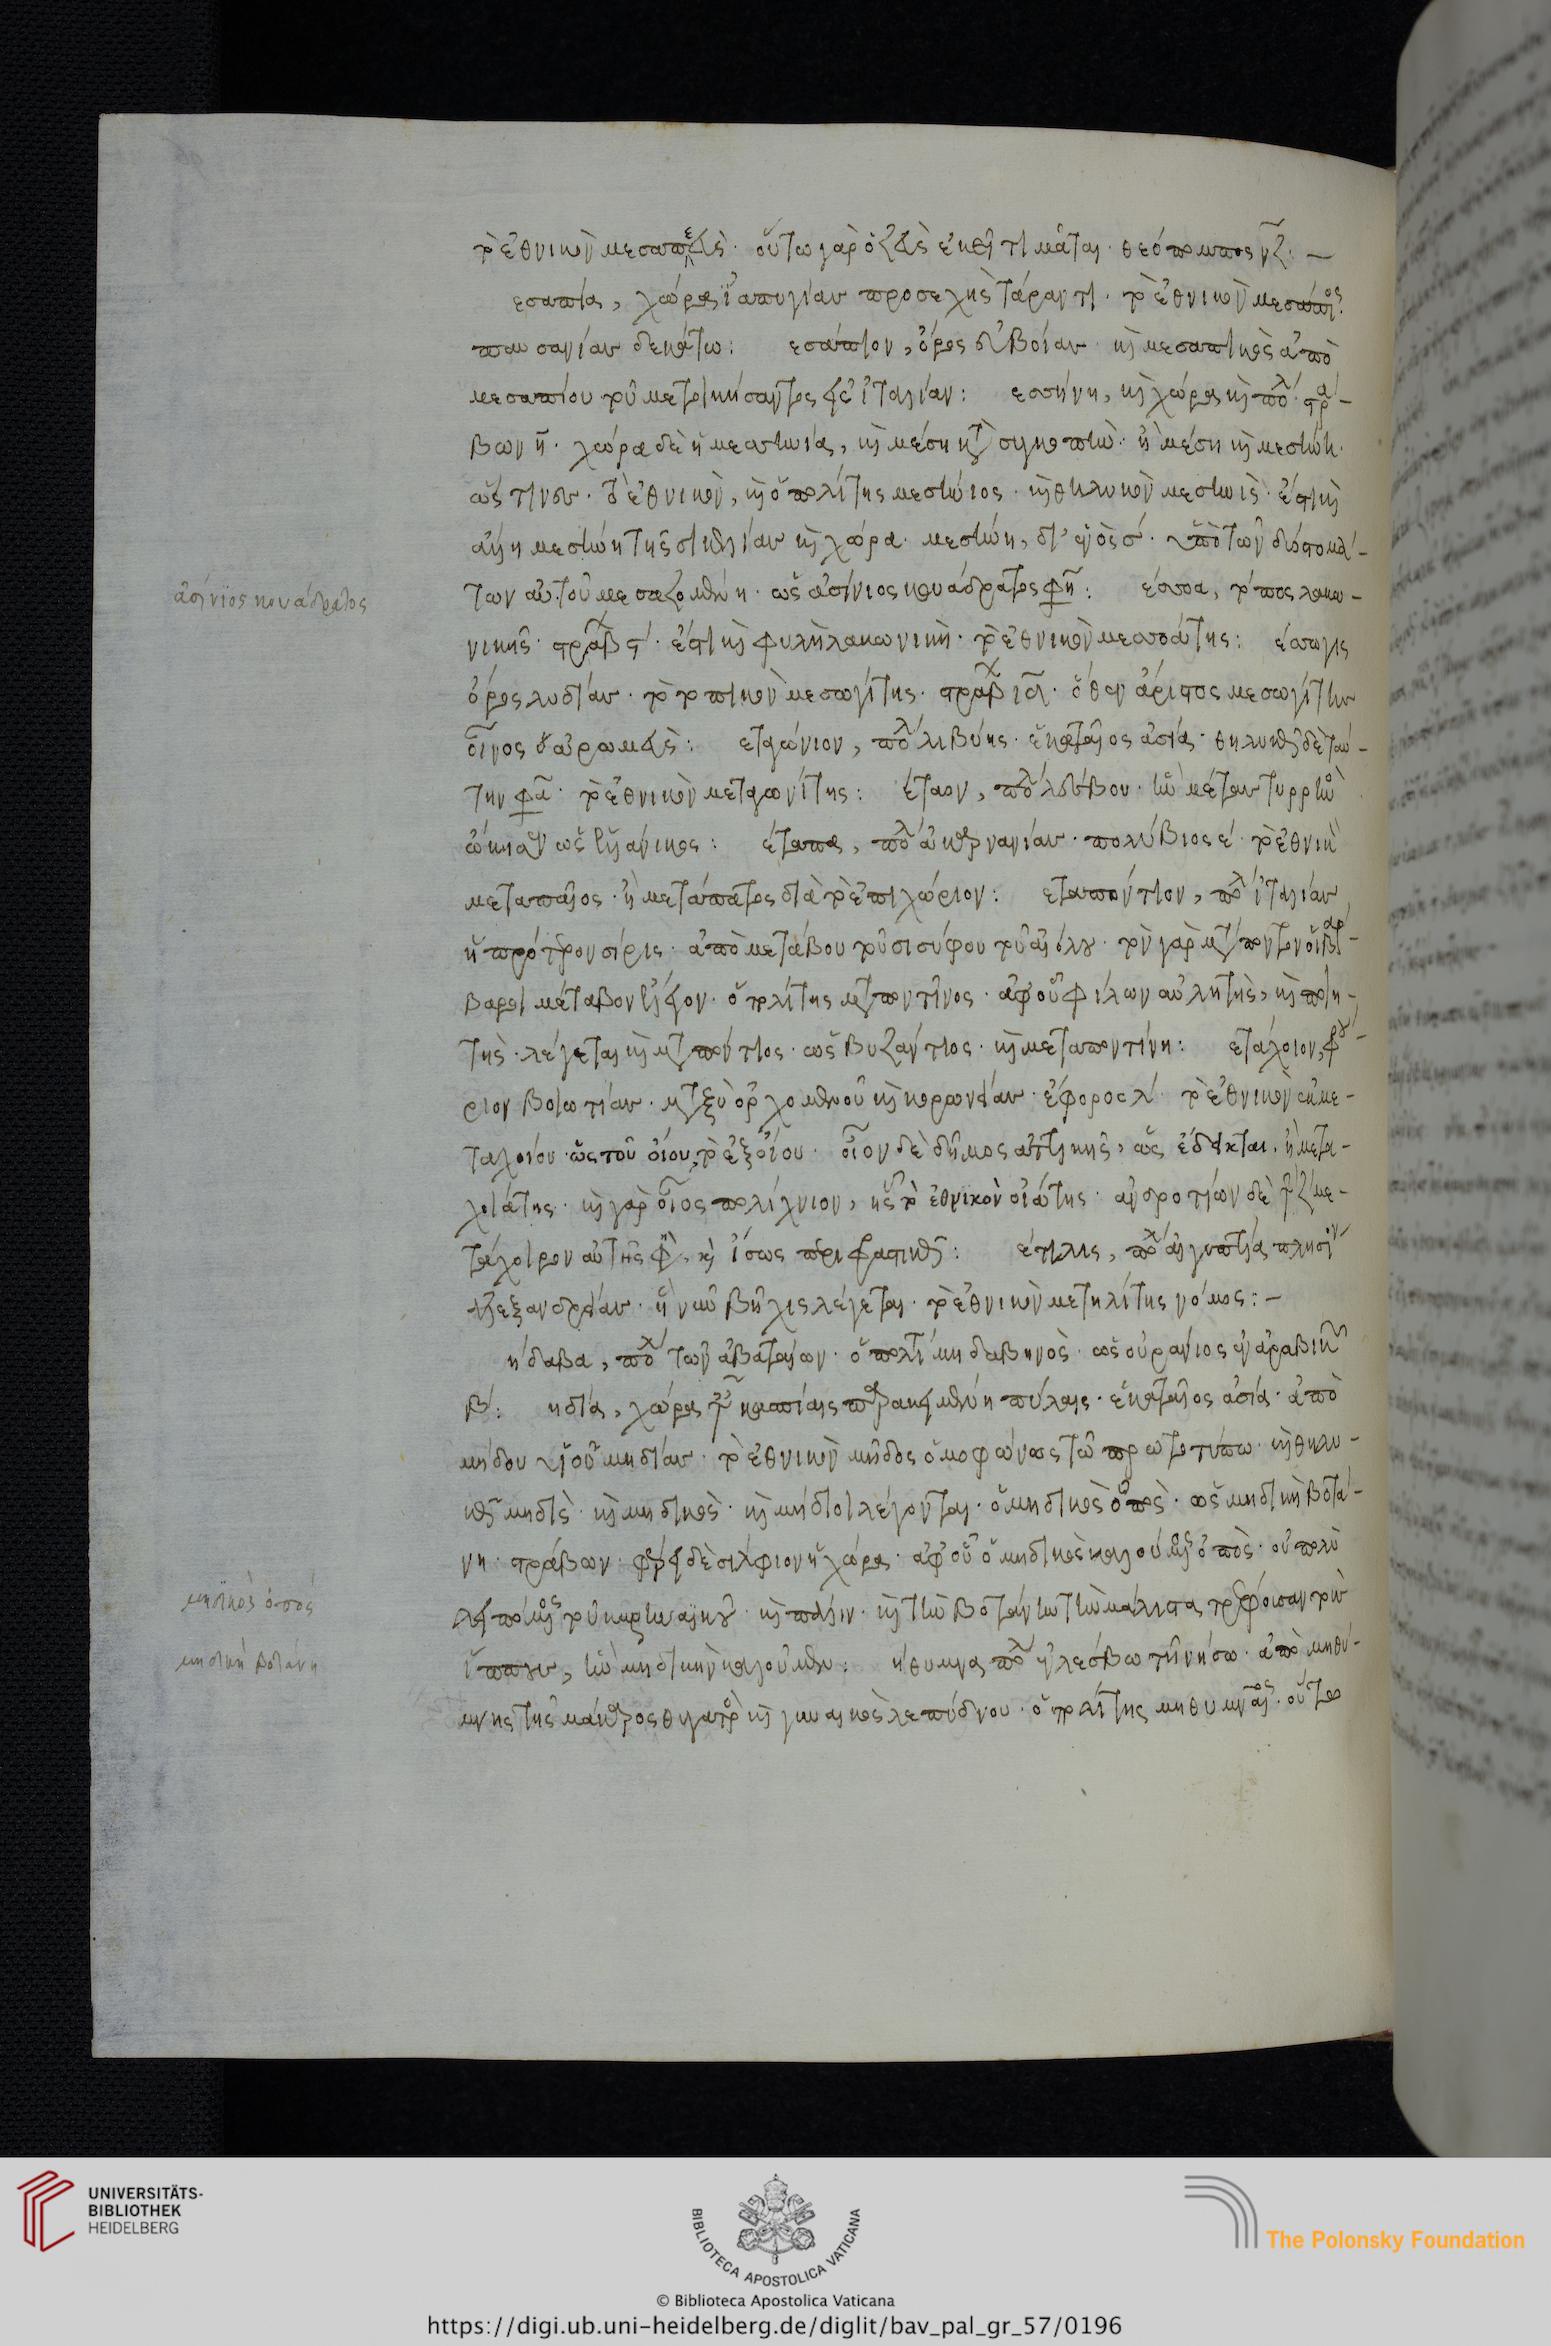 τὸ ἐθνικὸν μεσαπεεὺς· οὕτω γὰρ ὁ ζεὺς ἐκεῖ τιμᾶται· θεόπομπος νζ:—
εσαπία, χώρα ἰαπυγίας προσεχὴς τάραντι· τὸ ἐθνικὸν μεσάπιος
παυσανίας δεκάτω: εσάπιον, ὄρος εὐβοίας καὶ μεσαπικὸς ἀπὸ
μεσαπίου τοῦ μετοικήσαντος εἰς ἰταλίαν: εσσήνη, καὶ χώρα καὶ πόλις στρά-
βων η· χώρα δὲ ἡ μεσσωία, καὶ μέση κατὰ συγκοπὴν· ἢ μέση καὶ μεσώη
ὥς τινες· τὸ ἐθνικὸν, καὶ ὁ πολίτης μεσώιος· καὶ θηλυκὸν μεσωὶς· ἔστι καὶ
ἄλλη μεσώη τῆς σικελίας καὶ χώρα· μεσώη, δι' ἑνὸς σ· ἀπὸ τῶν δύο ποτα-
των αὐτοῦ μεσαζομένη· ὡς ἀσίνιος κουάδρατος φησὶ: έσσα, τόπος λακω-
νικῆς· στράβων ϛ· ἔστι καὶ φυλὴ λακωνικὴ· τὸ ἐθνικὸν μεσσάτης: έσωγις
ὄρος λυδίας· τὸ τοπικὸν μεσωγίτης· στράβων ιδ· ὅθεν ἄριστος μεσωγίτης
οἶνος
εταγώνιον, πόλις λιβύης· ἑκαταῖος ἀσία· θηλυκῶς δὲ ταύ-
την φασὶ· τὸ ἐθνικὸν μεταγωνίτης: έταον, πόλις λέσβου· ἣν μέτας τυρρηνὸς
ὤκισεν ὡς ἑλλάνικος: έταπα, πόλις ἀκαρνανίας· πολύβιος ε· τὸ ἐθνικὸν
μεταπαῖος· ἢ μεταπάτος διὰ τὸ ἐπιχώριον: εταπόντιον, πόλις ἰταλίας
ἡ πρότερον σίρις· ἀπὸ μετάβου τοῦ σισύφου τοῦ αἰόλου· τὸν γὰρ μετάποντον οἱ βάρ-
βαροι μέταβον ἔλεγον· ὁ πολίτης μεταποντῖνος· ἀφ' οὗ φίλων αὐλητὴς, καὶ ποιη-
τὴς· λέγεται καὶ μεταπόντιος· ὡς βυζάντιος· καὶ μεταποντίνη: εταχοιον, φρού-
ριον βοιωτίας· μεταξὺ ὀρχομενοῦ καὶ κορωνείας· ἔφορος λ· τὸ ἐθνικὸν ἐκ με-
ταχοίου· ὡς τοῦ οἴου, τὸ ἐξ οἴου· οἶον δὲ δῆμος ἀττικῆς, ὡς ἐδείκται· ἢ μετα-
χοιάτης· καὶ γὰρ οἶος πολίχνιον, ἧς τὸ ἐθνικὸν οἰάτης· ἀνδροτίων δὲ ζ με-
τάχοιρον αὐτῆς φησὶ, καὶ ἴσως περιφραστικῶς: έτηλις, πόλις αἰγυπτία πλησίον
ἀλεξανδρείας· ἣ νῦν βῆχις λέγεται· τὸ ἐθνικὸν μετηλίτης νόμος:—
ήδαβα, πόλις τῶν ἀβαταίων· ὁ πολίτης μηδαβηνὸς· ὡς οὐράνιος ἐν ἀραβικῶν
β: ηδία, χώρα ταῖς κασπίαις παρακειμένη πύλαις· ἑκαταῖος ἀσία· ἀπὸ
μήδου υἱοῦ μηδείας· τὸ ἐθνικὸν μῆδος ὁμοφώνως τῶ πρωτοτύπω· καὶ θηλυ-
κῶς μηδὶς· καὶ μηδικὸς· καὶ μήδιοι λέγονται· ὁ μηδικὸς ὀπὸς· ὡς μηδικὴ βοτά-
νη· στράβων· φέρει δὲ σίλφιον ἡ χώρα· ἀφ' οὗ ὁ μηδικὸς καλούμενος ὀπὸς· οὐ πολὺ
λειπόμενος τοῦ κυρηναικοῦ· καὶ πάλιν· καὶ τὴν βοτάνην τὴν μάλιστα τρέφουσαν τοὺς
ἵππους, ἣν μηδικὴν καλοῦμεν: ήθυμνα πόλις ἐν λέσβω τῆ νήσω· ἀπὸ μηθύ-
μνης τῆς μάκαρος θυγατρὸς καὶ γυναικὸς λεπύδνου· ὁ πολίτης μηθυμναῖος· οὕτως
ἀσίνιος κουάδρατος
μηδικὸς ὀπός
μηδικὴ βοτάνη
UNIVERSITÄTS-
BIBLIOTHEK
HEIDELBERG
BIBLIOTECA APOSTOLICA VATICANA
The Polonsky Foundation
© Biblioteca Apostolica Vaticana
https://digi.ub.uni-heidelberg.de/diglit/bav_pal_gr_57/0196